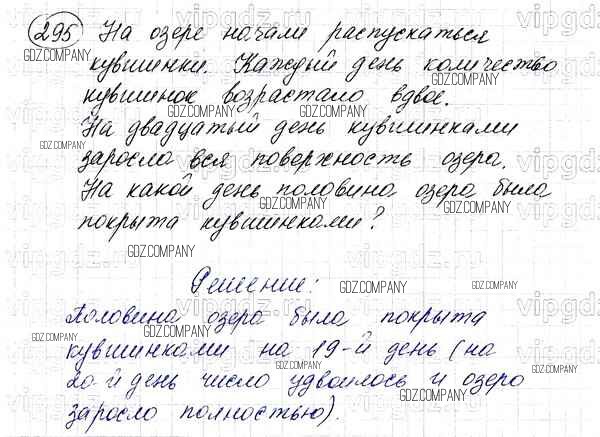 295 На озере начали распускаться
кувшинки. Каждый день количество
кувшинок возрастало вдвое.
На двадцатый день кувшинками
заросла вся поверхность озера.
На какой день половина озера была
покрыта кувшинками?
Решение:
Половина озера была покрыта
кувшинками на 19-й день (на
20-й день число удвоилось и озеро
заросло полностью).